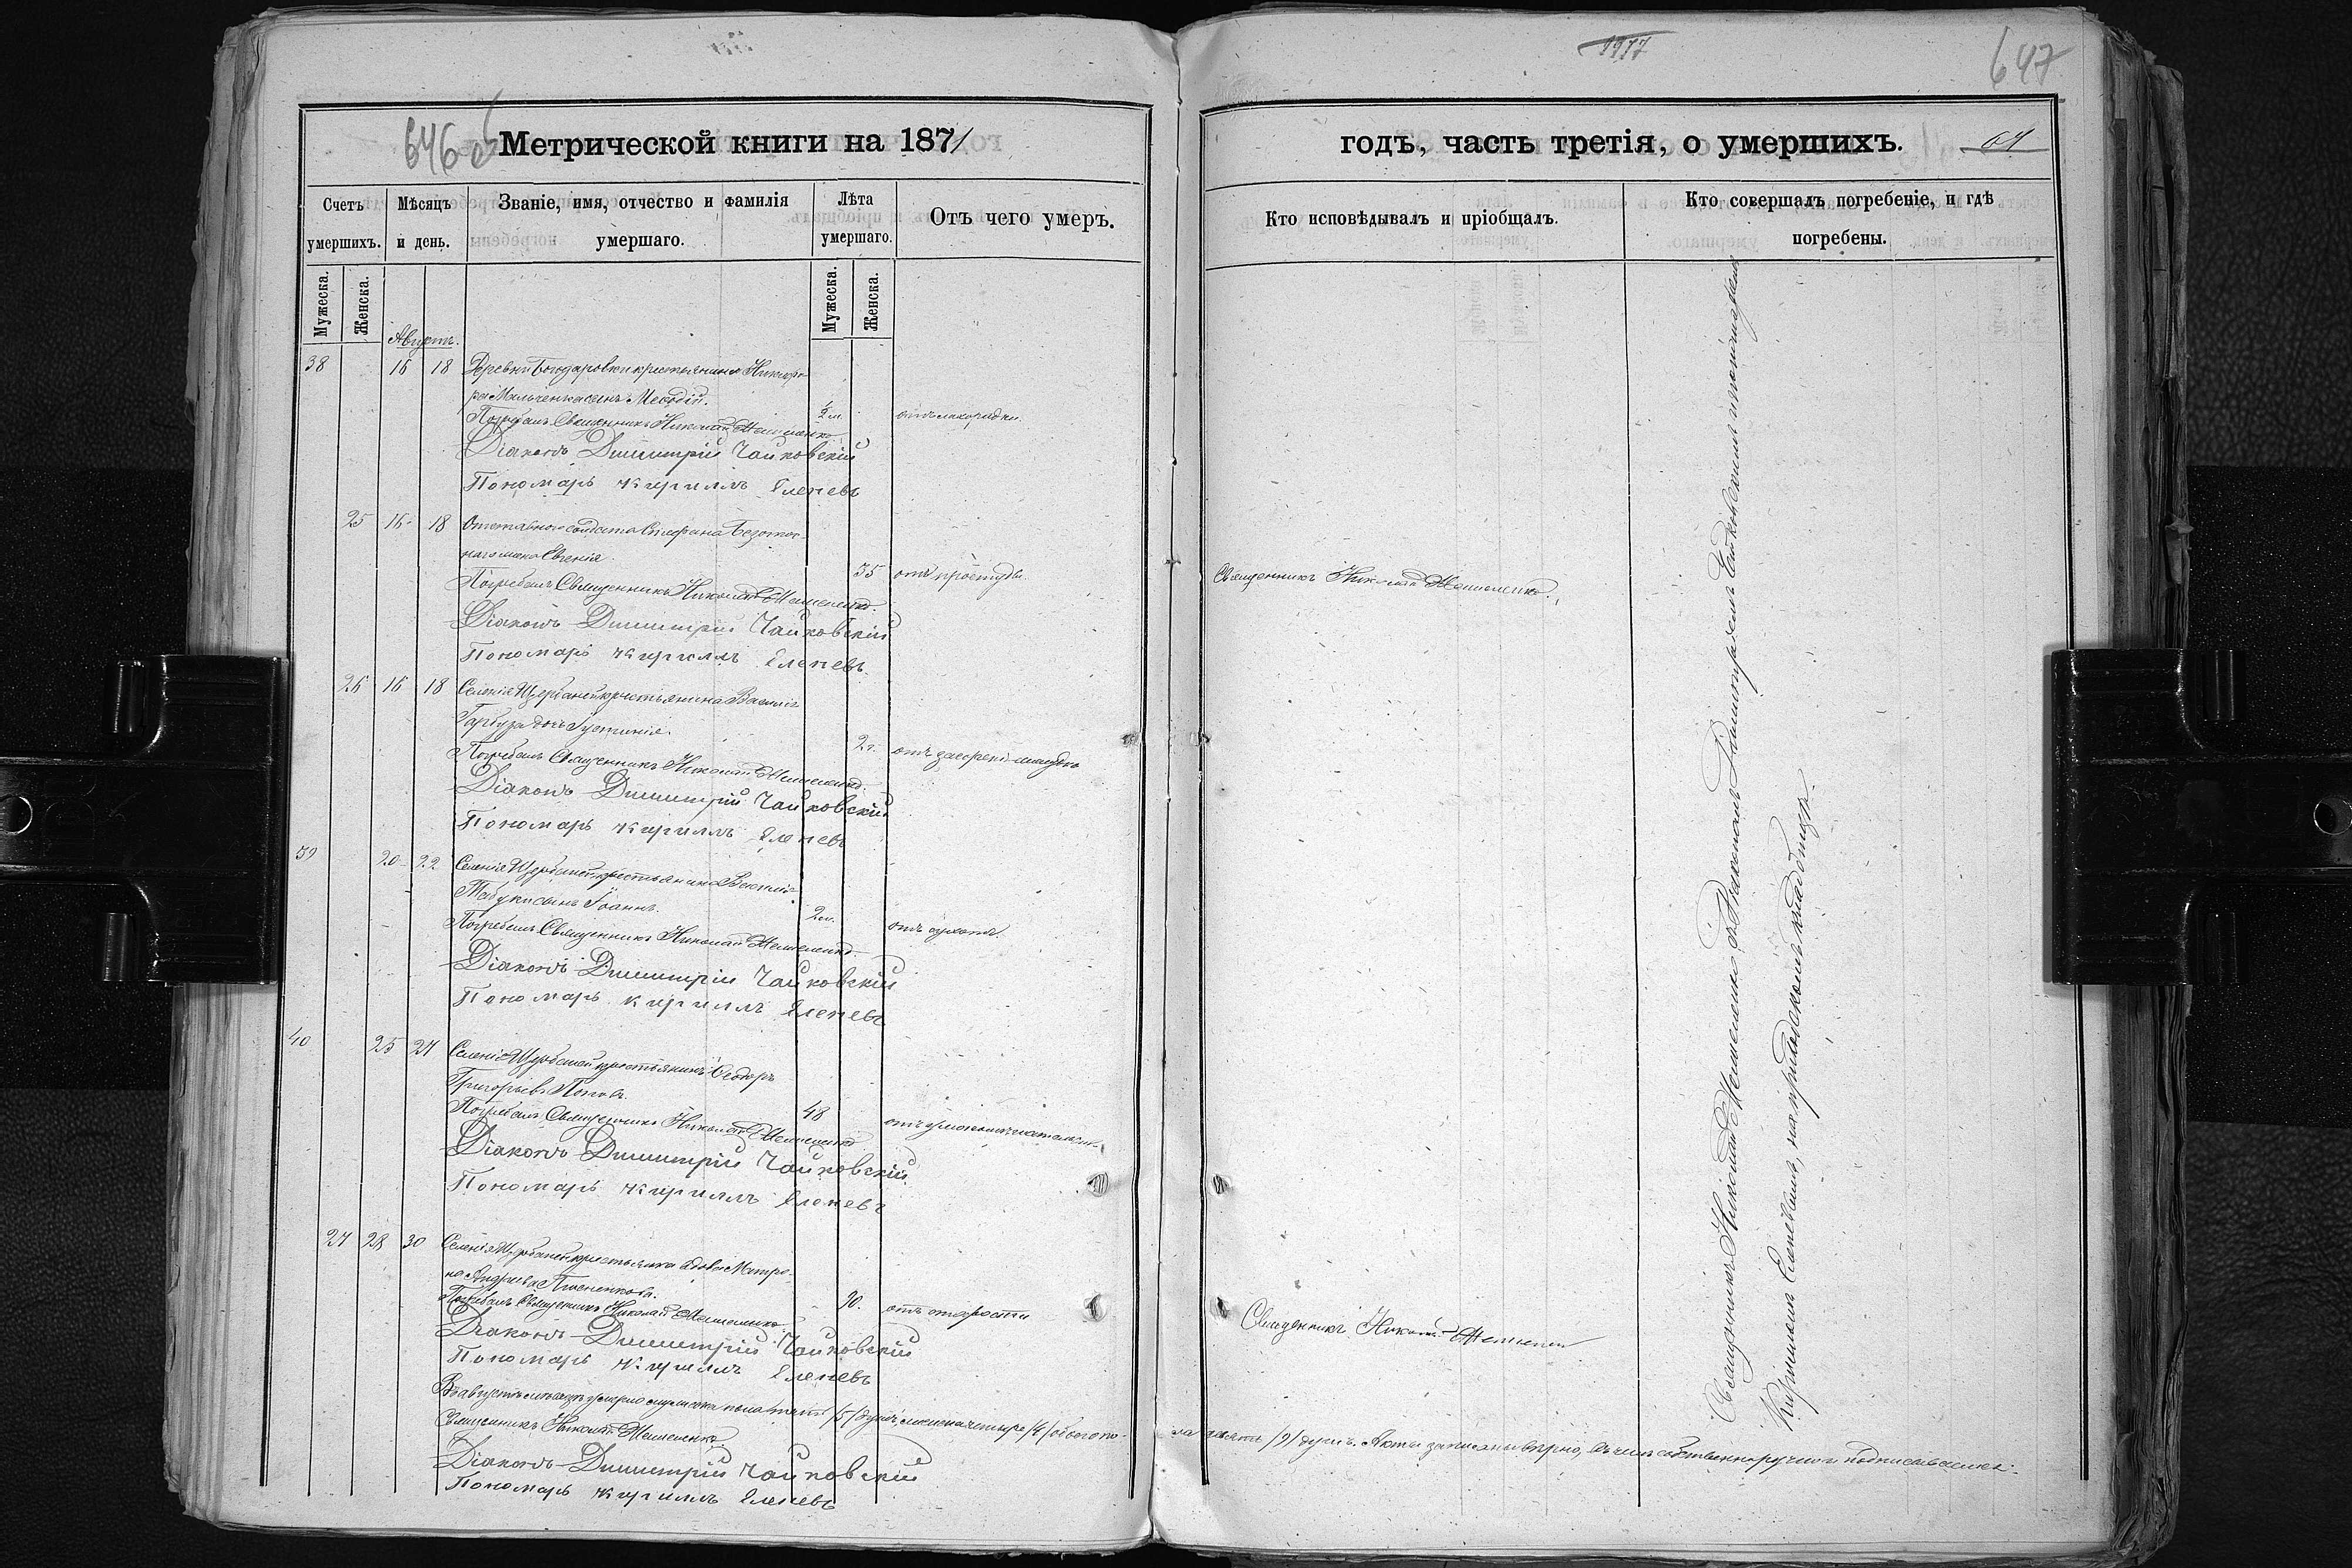 1917
647
646 об
Метрической книги на 1871
годъ, часть третія, о умершихъ.
Счетъ умершихъ.
Мѣсяцъ и день.
Званіе, имя, отчество и фамилія умершаго.
Лѣта умершаго.
Отъ чего умеръ.
Кто исповѣдывалъ и пріобщалъ.
Кто совершалъ погребеніе, и гдѣ погребены.
Мужеска.
Женска.
Мужеска.
Женска.
Августъ.
38 16 18 Деревни Богдаровки крестьянина Никифо-
ра Мальченка сынъ Меѳодій.
½ м. отъ лихорадки.
Погребалъ Священникъ Николай
Діаконъ Димитрій Чайковскій
Пономарь Кириллъ Еленевъ
25 16 18 Отставнаго солдата
жена Евгенія.
35 отъ простуды
Погребалъ Священникъ Николай
Священникъ Николай
Діаконъ Димитрій Чайковскій
Пономарь Кириллъ Еленевъ
26 16 18 Селенія Щербаней крестьянина Василія
Гарбуза дочь Іустинія.
2 г. отъ засоренія желудка
Погребалъ Священникъ Николай
Діаконъ Димитрій Чайковскій
Пономарь Кириллъ Еленевъ
39 20 22 Селенія Щербаней крестьянина Василія
сынъ Іоаннъ.
2 м.
Погребалъ Священникъ Николай
Діаконъ Димитрій Чайковскій
Пономарь Кириллъ Еленевъ
40 25 27 Селенія Щербаней крестьянинъ Ѳеодоръ
Григорьевъ Поповъ.
48
Погребалъ Священникъ Николай
Діаконъ Димитрій Чайковскій
Пономарь Кириллъ Еленевъ
27 28 30 Селенія Щербаней крестьянка вдова Матро-
на Андреева
90. отъ старости
Погребалъ Священникъ Николай
Священникъ Николай
Діаконъ Димитрій Чайковскій
Пономарь Кириллъ Еленевъ
Въ августѣ мѣсяцѣ умерло мужеска пола пять /5/ душъ женска четыре /4/ обоего по-
ла девять /9/ душъ. Акты записаны вѣрно, въ чемъ собственноручно и подписываемся.
Священникъ Николай
Діаконъ Димитрій Чайковскій
Пономарь Кириллъ Еленевъ
Священникъ Николай съ Діакономъ Димитріемъ Чайковскимъ и пономаремъ
Кирилломъ Еленевымъ, на приходскомъ кладбищѣ.